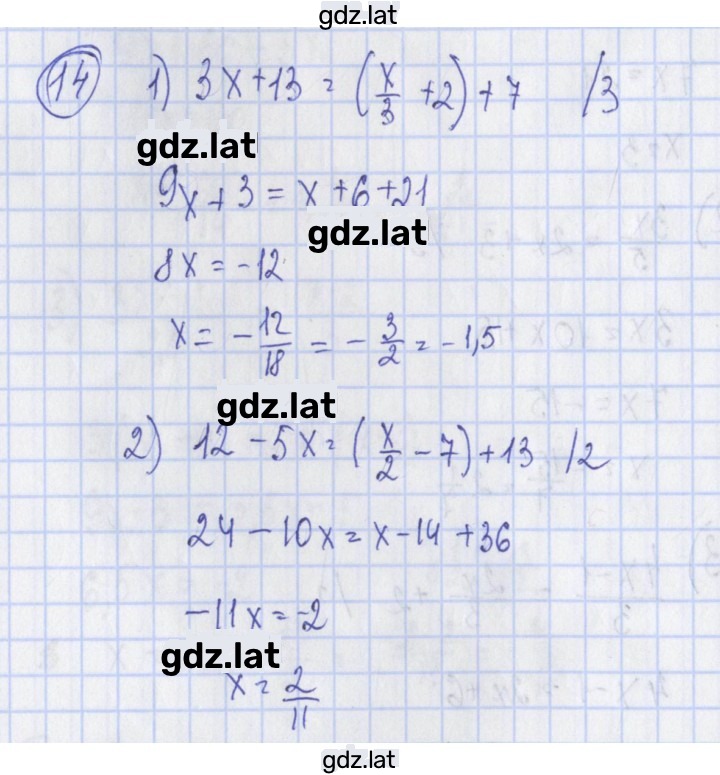 gdz.lat
14 1) 3x+13 = (x/3 +2)+7 /3
gdz.lat
9x+3 = x+6+21
gdz.lat
8x = -12
x = - 12/18 = - 3/2 = -1,5
gdz.lat
2) 12-5x = (x/2 -7)+13 /2
24-10x = x-14+36
-11x = -2
gdz.lat
x = 2/11
gdz.lat